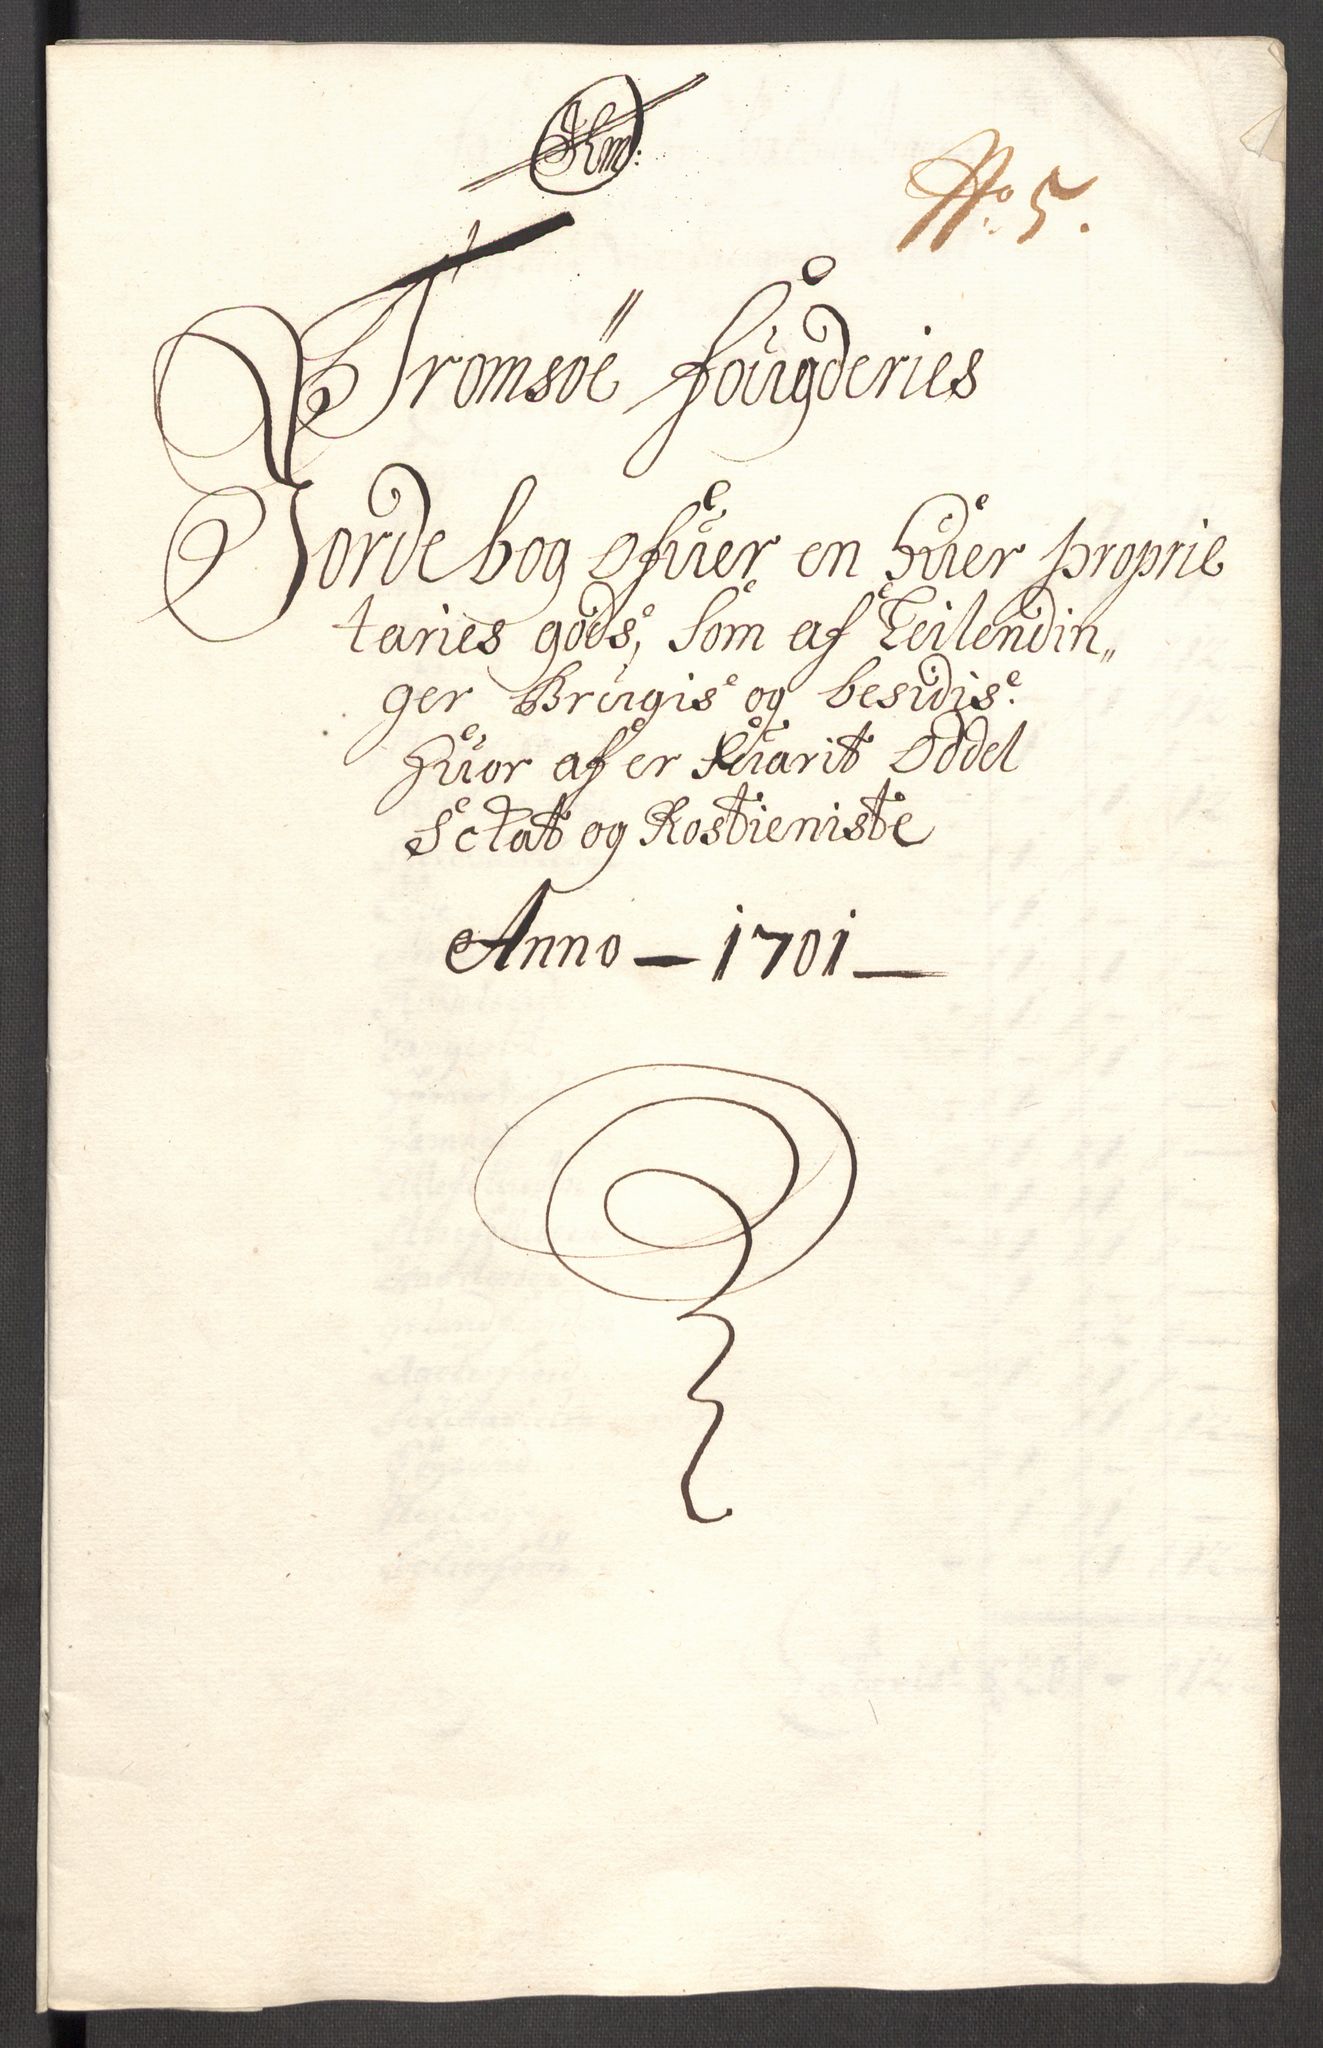 Km:
No. 5.
Tromsöe fougderies
Jordebog ofuer en huer proprie
taries gods, som af Leilendin„
ger Brugis og besidis.
huor af er suarit Oddel
Sckat og Rostieniste
Anno — 1701 —